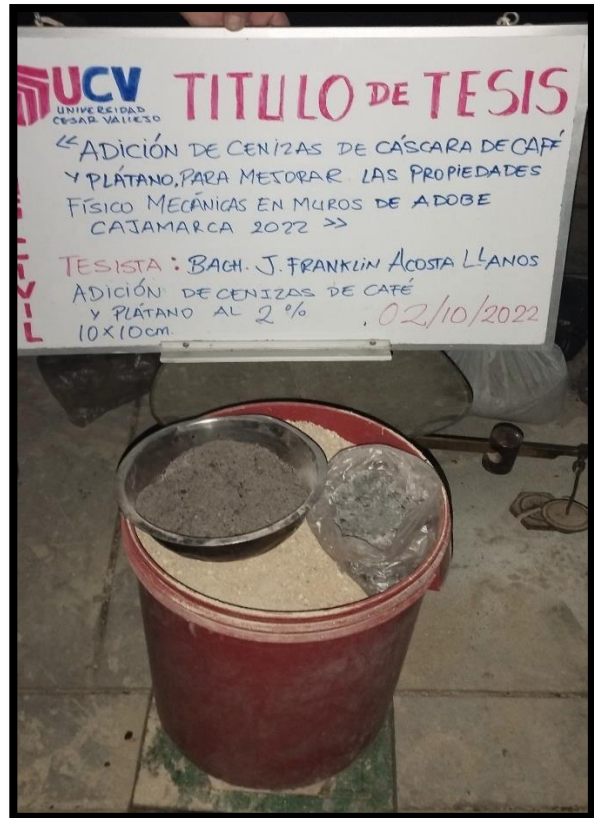 UCV
UNIVERSIDAD
CESAR VALLEJO
TITULO DE TESIS
"ADICIÓN DE CENIZAS DE CÁSCARA DE CAFÉ
Y PLÁTANO, PARA MEJORAR LAS PROPIEDADES
FÍSICO MECÁNICAS EN MUROS DE ADOBE
CAJAMARCA 2022"
TESISTA: BACH. J. FRANKLIN ACOSTA LLANOS
ADICIÓN DE CENIZAS DE CAFÉ
Y PLÁTANO AL 2%
10×10cm.
02/10/2022